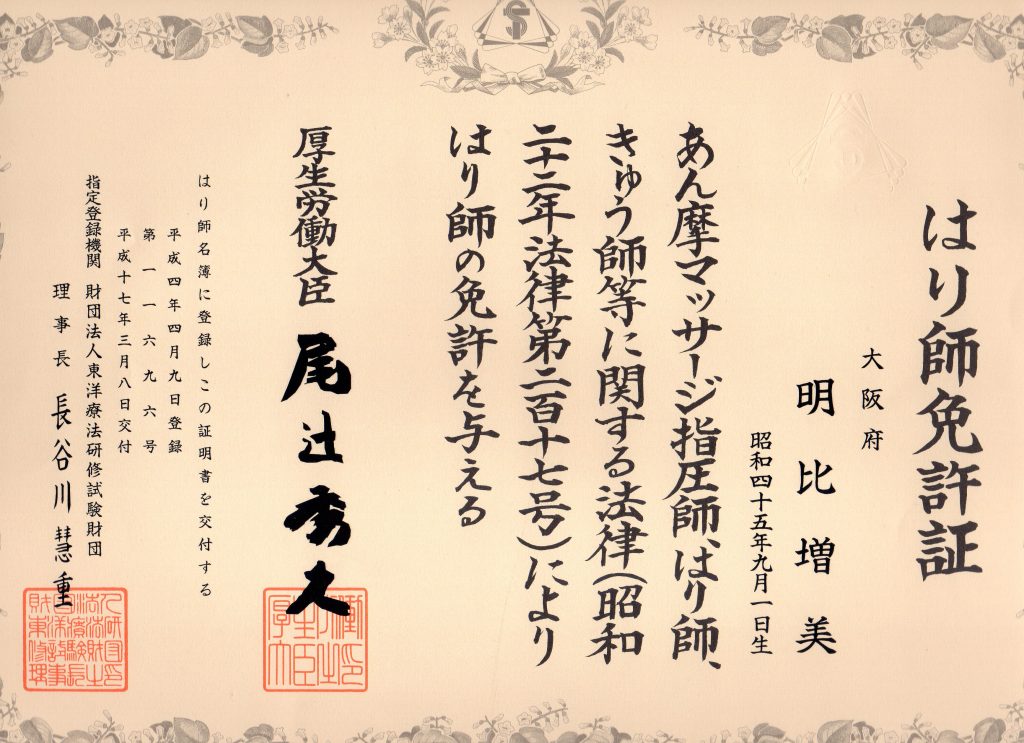 はり師免許証
大阪府
明比増美
昭和四十五年九月一日生
あん摩マッサージ指圧師、はり師、
きゅう師等に関する法律（昭和
二十二年法律第二百十七号）により
はり師の免許を与える
厚生労働大臣 尾辻秀久
はり師名簿に登録しこの証明書を交付する
平成四年四月九日登録
第一一六九六号
平成十七年三月八日交付
指定登録機関 財団法人東洋療法研修試験財団
理事長 長谷川慧重